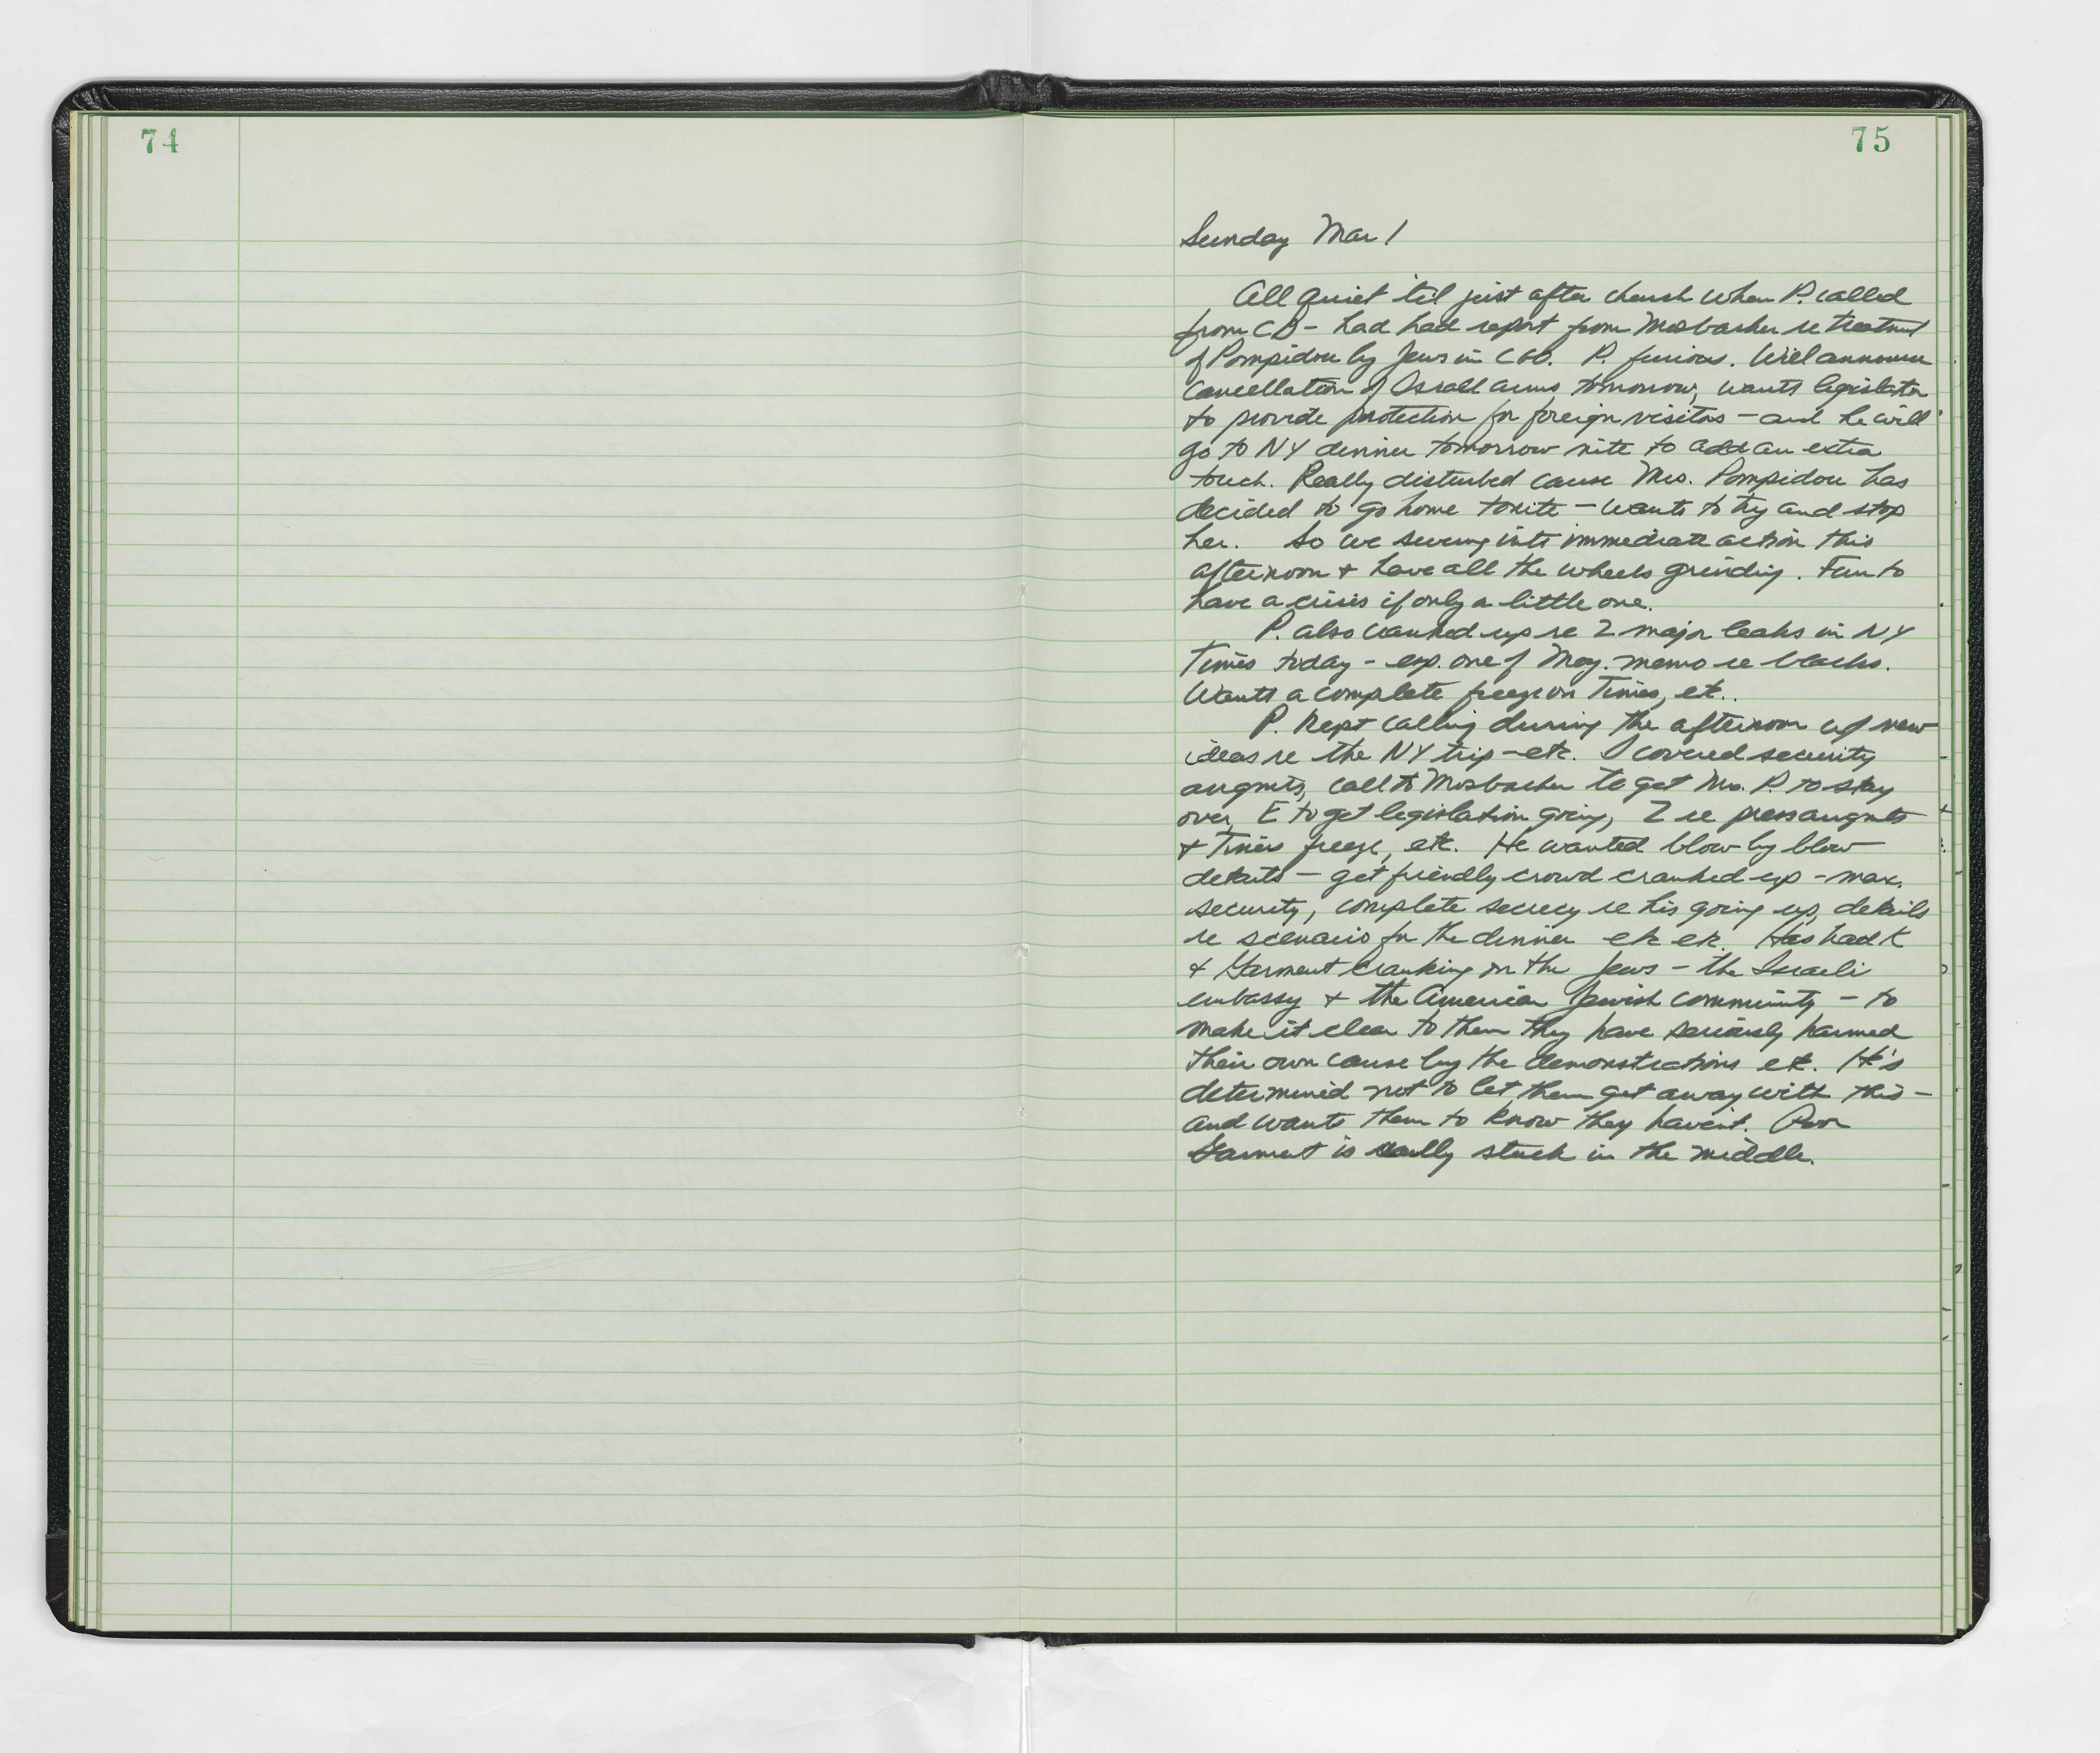 74
75
Sunday Mar 1
All quiet 'til just after church when P. called
from CD - had had report from Mosbacher re treatment
of Pompidou by Jews in CGO. P. furious. Will announce
cancellation of Israeli arms tomorrow, wants legislation
to provide protection for foreign visitors - and he will
go to NY dinner tomorrow nite to add an extra
touch. Really disturbed cause Mrs. Pompidou has
decided to go home tonite - wants to try and stop
her. So we swung into immediate action this
afternoon & have all the wheels grinding. Fun to
have a crisis if only a little one.
P. also cranked up re 2 major leaks in NY
Times today - esp. one of Moy. memo re blacks.
Wants a complete freeze on Times, etc.
P. kept calling during the afternoon w/ new
ideas re the NY trip - etc. I covered security
arrgmts, call to Mosbacher to get Mrs. P. to stay
over, E to get legislation going, Z re press arrgmts
& Times freeze, etc. He wanted blow by blow
details - get friendly crowd cranked up - max.
security, complete secrecy re his going up, details
re scenario for the dinner etc etc. Has had K
& Garment cranking on the Jews - the Israeli
embassy & the American Jewish community - to
make it clear to them they have seriously harmed
their own cause by the demonstrations etc. He's
determined not to let them get away with this -
and wants them to know they haven't. Poor
Garment is really stuck in the middle.